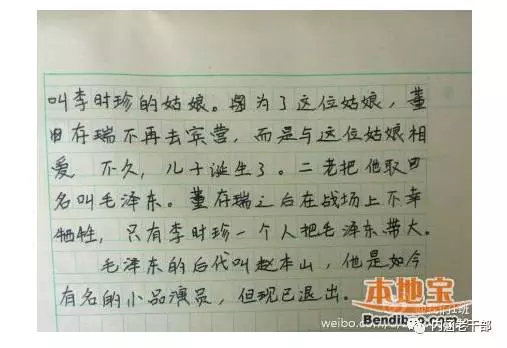 叫李时珍的姑娘。因为了这位姑娘，董
存瑞不再去宾营，而是与这位姑娘相
爱 不久，儿子诞生了。二老把他取
名叫毛泽东。董存瑞之后在战场上不幸
牺牲，只有李时珍一个人把毛泽东带大。
毛泽东的后代叫赵本山，他是如今
有名的小品演员，但现已退出。
本地宝
Bendibao.com
weibo.com/
内涵老干部